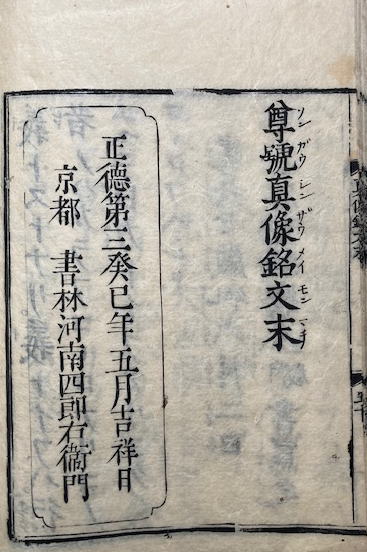 尊號真像銘文末
ソンガウシンザウメイモン
正德第三癸巳年五月吉祥日
京都 書林河南四郎右衞門